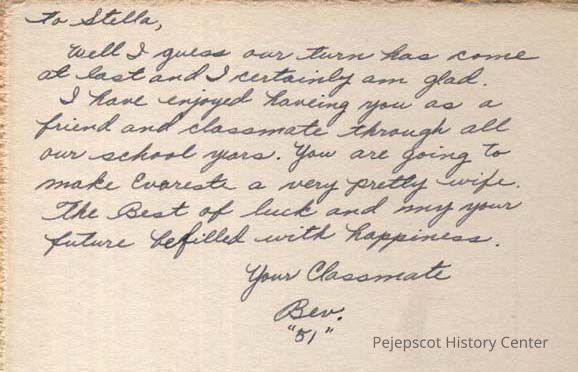 To Stella,
Well I guess our turn has come
at last and I certainly am glad.
I have enjoyed haveing you as a
friend and classmate through all
our school yars. You are going to
make Evareste a very pretty wife.
The Best of luck and my your
future befilled with happiness.
Your Classmate
Bev.
"51"
Pejepscot History Center